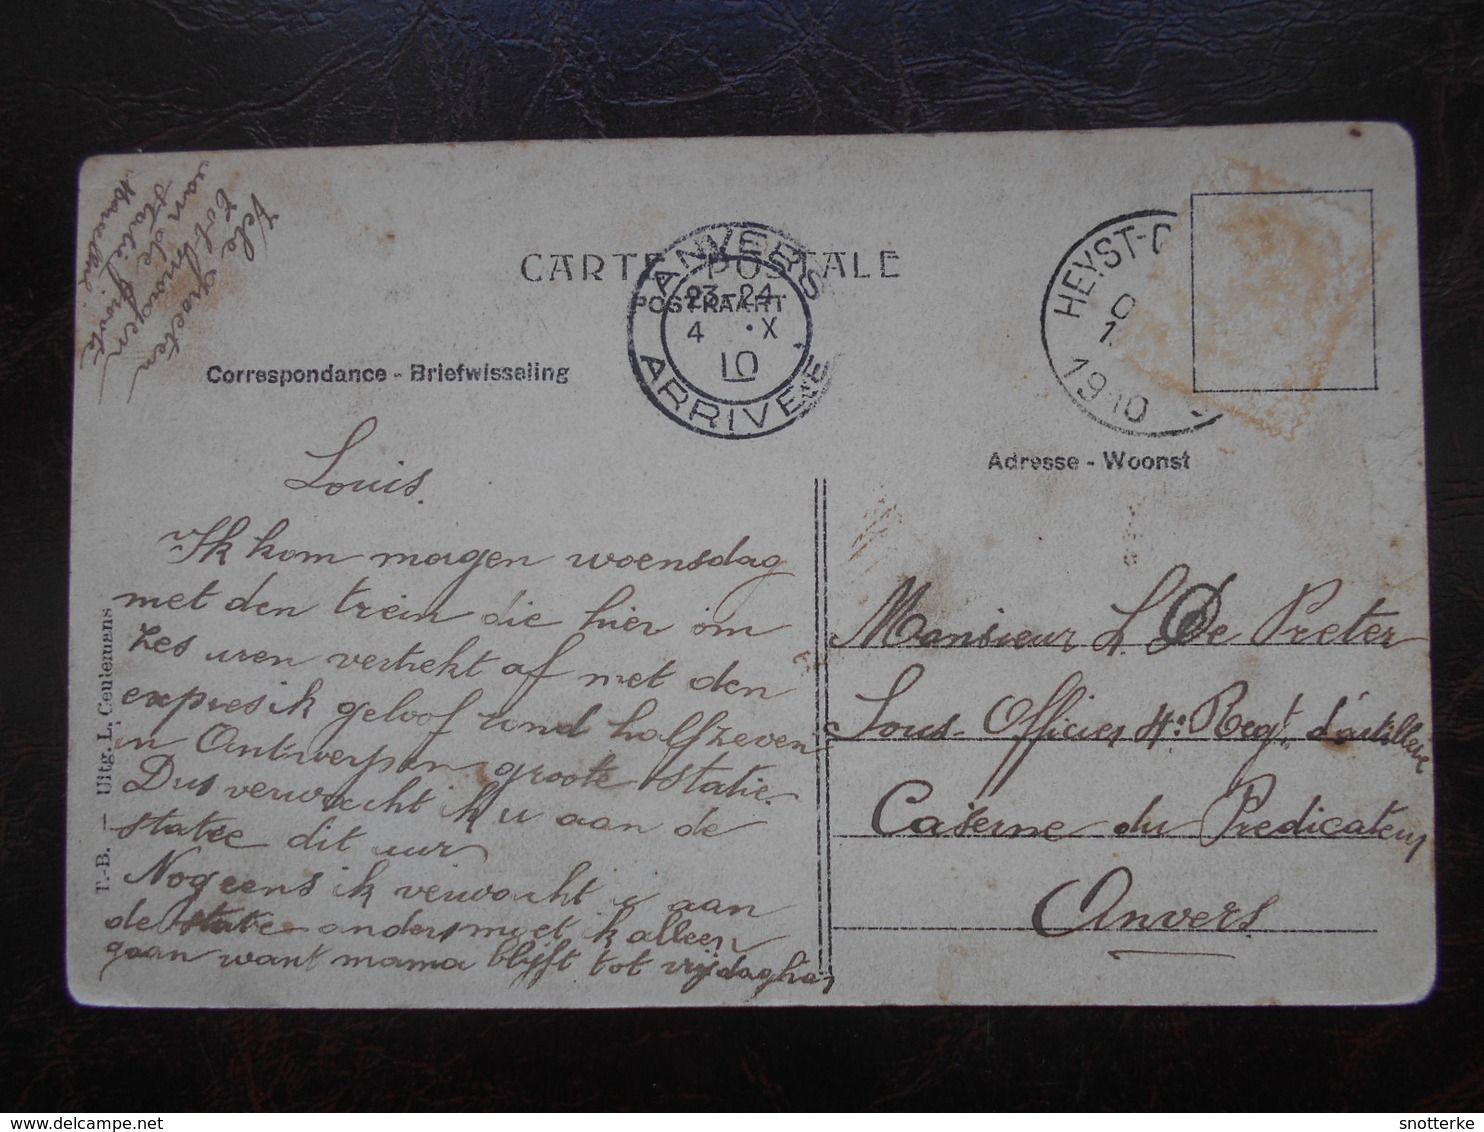 Vele groeten
tot morgen
van de
CARTE POSTALE
POSTKAART
ANVERS
23-24
4 X
10
ARRIVÉE
HEYST-
1910
Correspondance - Briefwisseling
Adresse - Woonst
Louis.
Ik kom morgen woensdag
met den trein die hier om
zes uren vertrekt af met den
expres ik geloof rond halfzeven
in Antwerpen groote statie.
Dus verwacht ik u aan de
statie dit uur
Nogeens ik verwacht u aan
de statie anders moet ik alleen
gaan want mama blijft tot vrijdag
Monsieur L De Preter
Sous-Officier 4e Regt. d'artillerie
Caserne du Predicateur
Anvers
T.-B. — Uitg. L. Ceulemans
snotterke